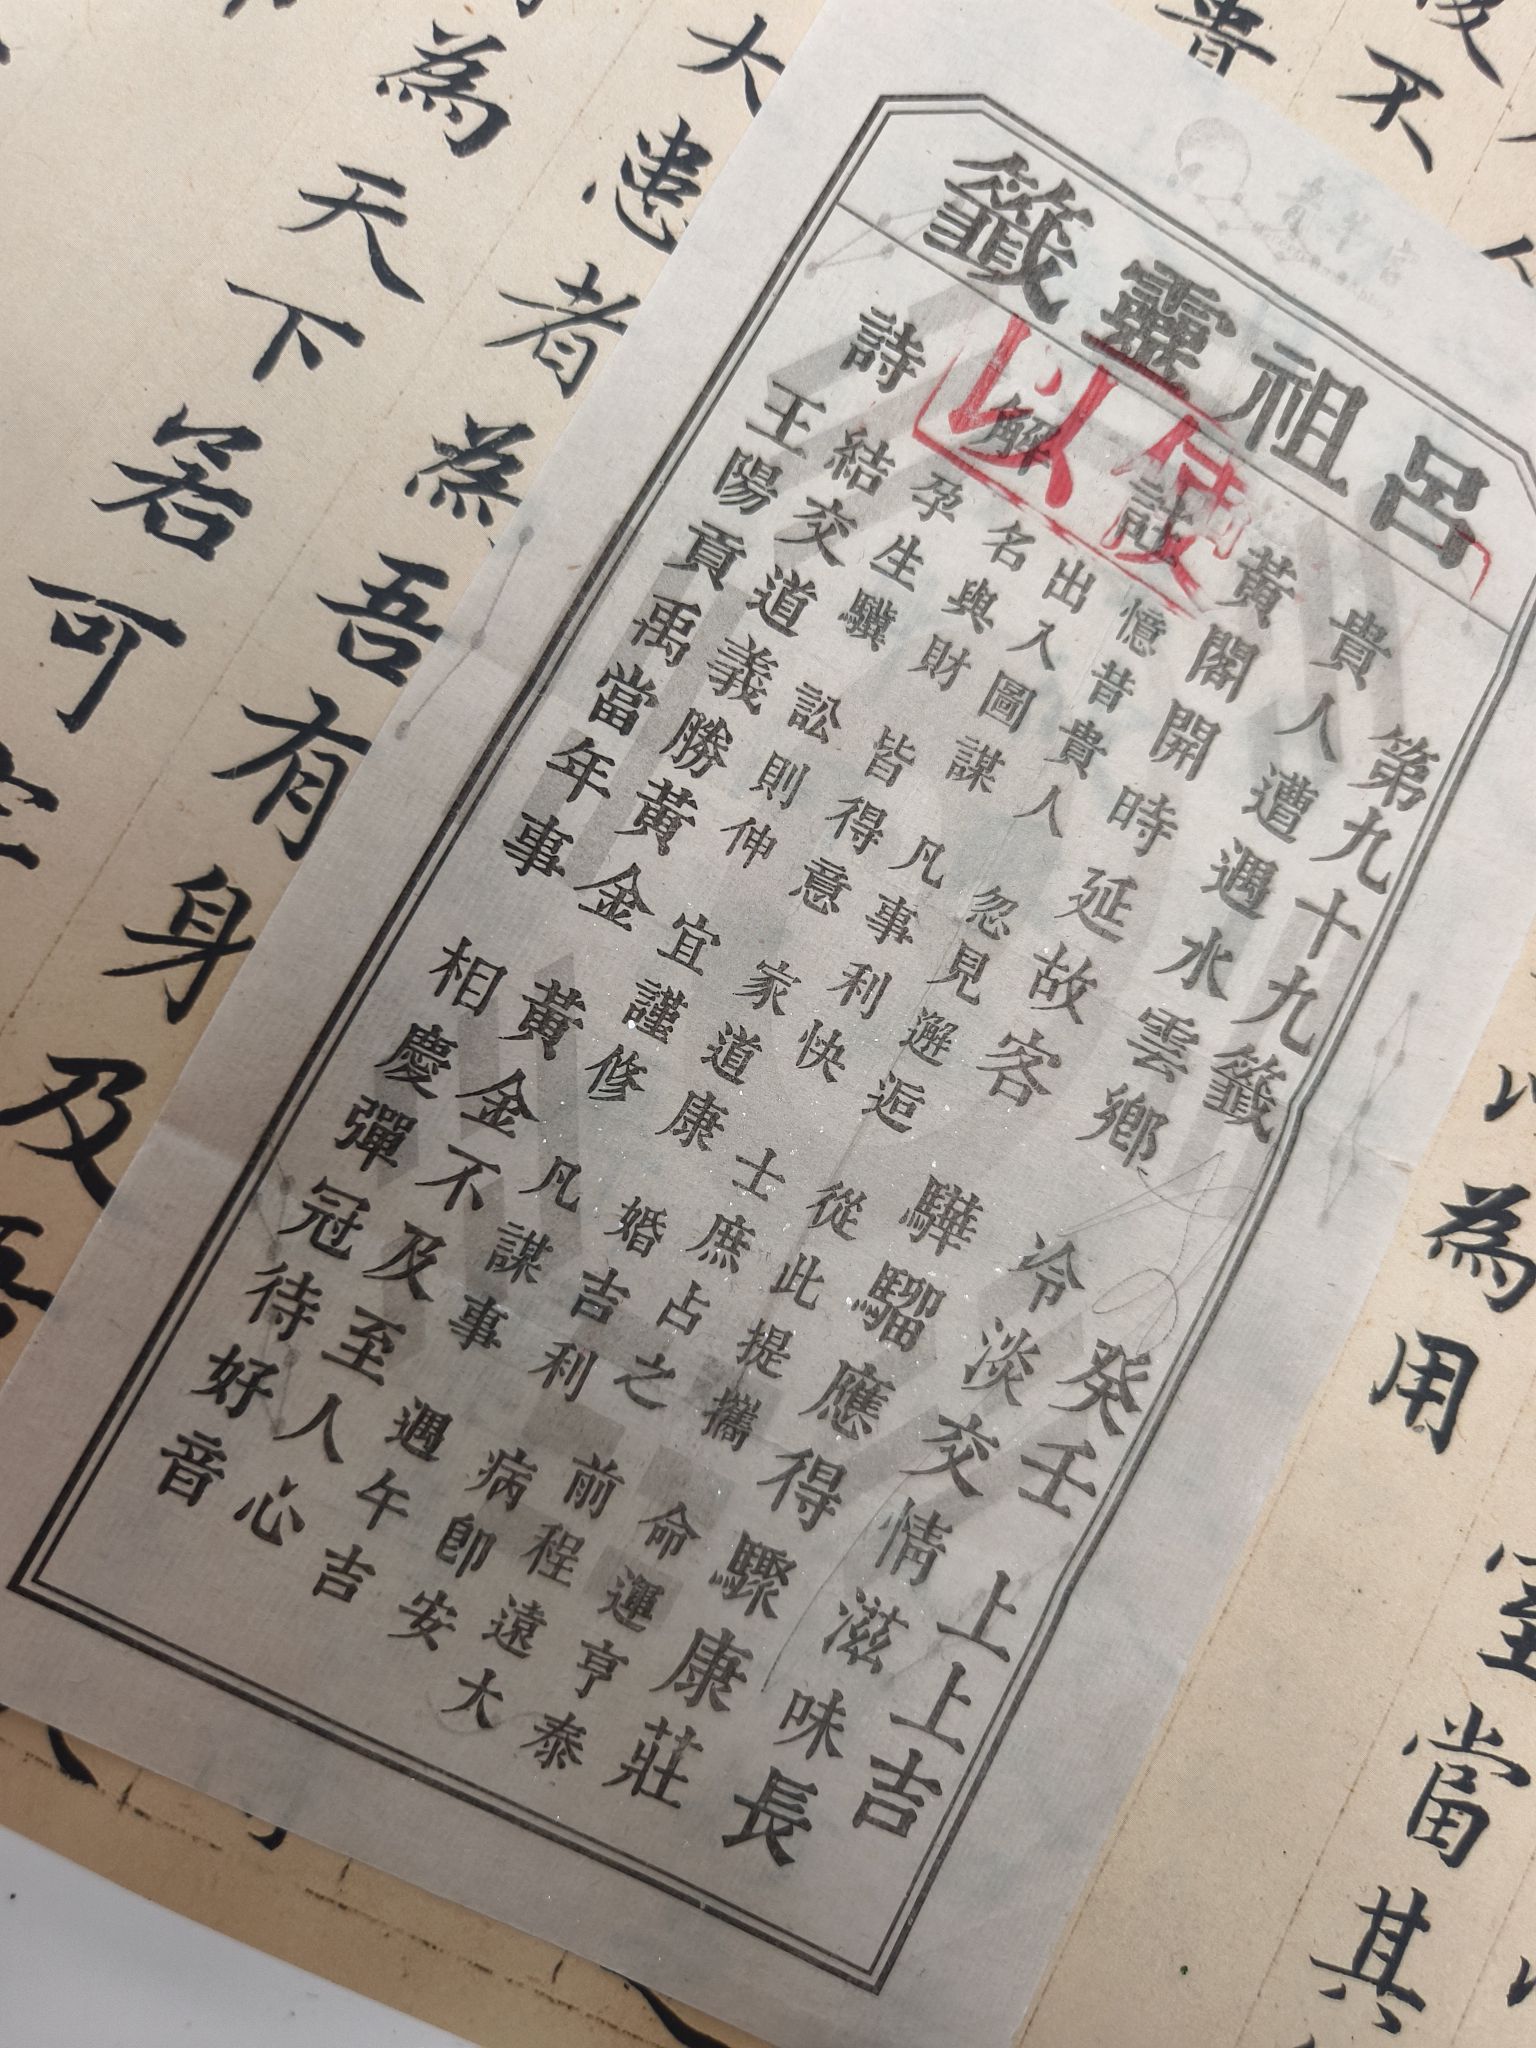 以為用
室當其
不
呂祖靈籤
第九十九籤 癸壬 上上吉
貴人遭遇水雲鄉 冷淡交情滋味長
黃閣開時延故客 驊騮應得驟康莊
訣 憶昔貴人 忽見邂逅 從此提攜 命運亨泰
出入圖謀 凡事利快 士庶占之 前程遠大
解 名與財 皆得意 家道康 婚吉利 病即安
孕生驥 訟則伸 宜謹修 凡謀事 遇午吉
詩 結交道義勝黃金 黃金不及至人心
王陽貢禹當年事 相慶彈冠待好音
大患者為吾有身及吾
為天下若可